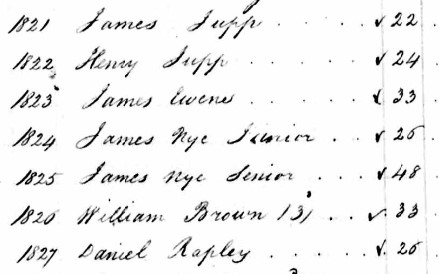 1821 James Jupp . . . . . ✓ 22
1822 Henry Jupp . . . . . ✓ 24
1823 James Ewens . . . . ✓ 33
1824 James Nye Junior . . ✓ 26
1825 James Nye Senior . . ✓ 48
1826 William Brown (3) . . ✓ 33
1827 Daniel Rapley . . . . . ✓ 26